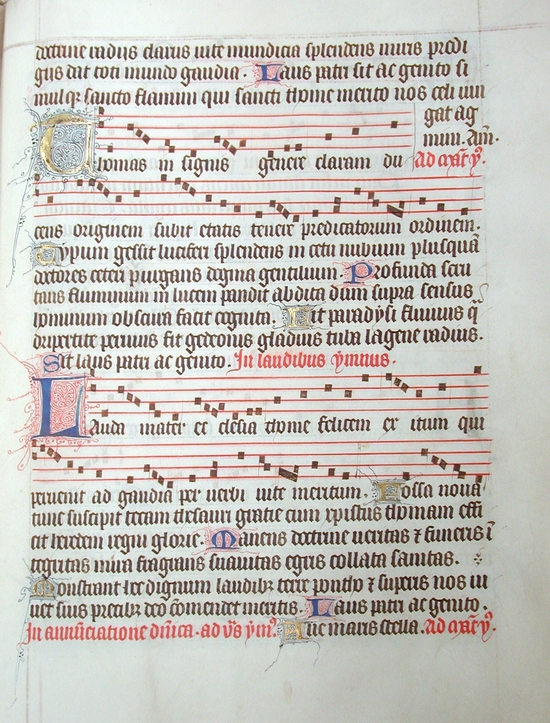 doctrine radijs clarus uite mundicia splendens miris prodi
gijs dat toti mundo gaudia. Laus patri sit ac genito si
mulqʒ sancto flamini qui sancti thome merito nos celi iun
gat ag
mini. Am̄.
Thomas in signis genere claram du Ad matˉ y⁹.
cens originem subit etatis tenere predicatorum ordinem.
Typum gessit luciferi splendens in cetu nubium plusquā
doctores ceteri purgans dogma gentilium. Profunda scru
tans fluminum in lucem pandit abdita dum supra sensus
hominum obscura facit cognita. Fit paradysi fluuius q̄
dripertite peruius fit gedeonis gladius tuba lagene radius.
Sit laus patri ac genito. In laudibus ymnus.
Lauda mater ec clesia thome felicem ex itum qui
peruenit ad gaudia per uerbi uite meritum. Fossa noua
tunc suscipit tecam thesauri gratie cum xpistus thomam effi
cit heredem regni glorie. Manens doctrine ueritas ⁊ funeris ī
tegritas mira fragrans suauitas egris collata sanitas.
Monstrant hec dignum laudibʒ terre ponto ⁊ superis nos iu
uet suis precibʒ deo cōmendet meritis. Laus patri ac genito.
In annūciatione dn̄ica. ad v̄s ymˉ⁹. Aue maris stella. Ad matˉ y⁹.